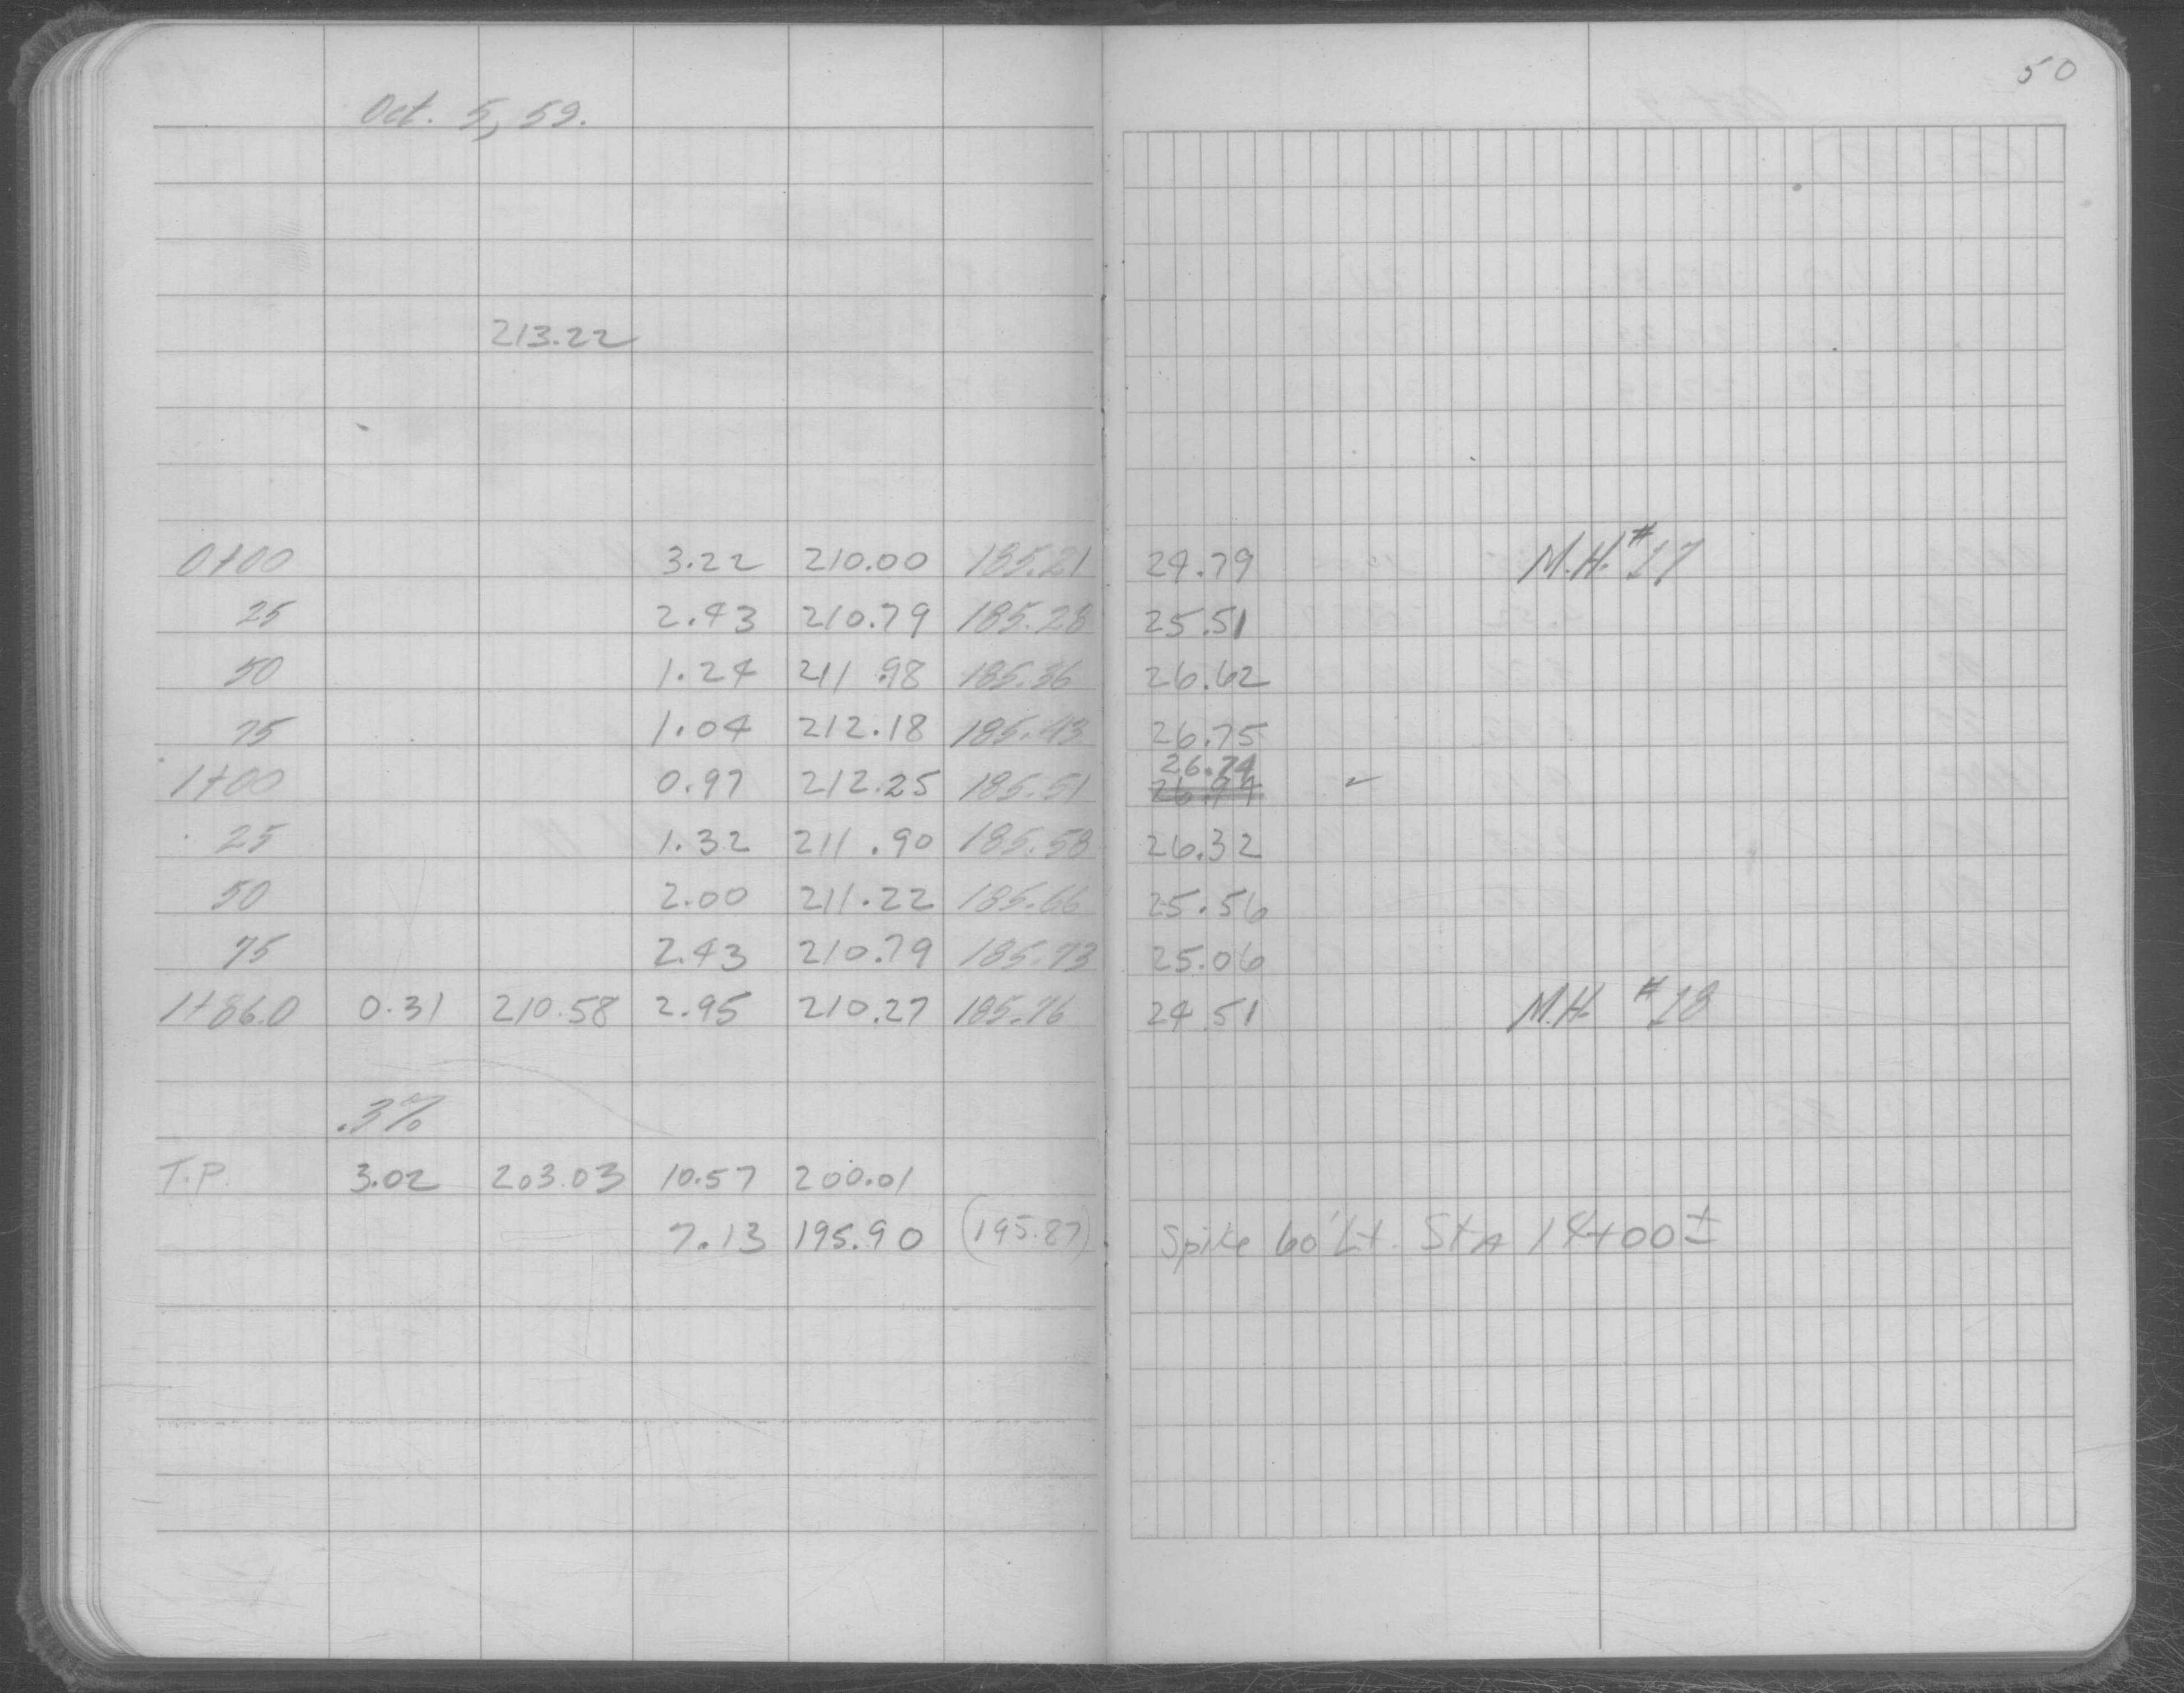 50
Oct. 5, 59.
213.22
0+00 3.22 210.00 185.21 24.79 M.H. #17
25 2.43 210.79 185.28 25.51
50 1.24 211.98 185.36 26.62
75 1.04 212.18 185.43 26.75
26.74
1+00 0.97 212.25 185.51 ✓
25 1.32 211.90 185.58 26.32
50 2.00 211.22 185.66 25.56
75 2.43 210.79 185.73 25.06
1+86.0 0.31 210.58 2.95 210.27 185.76 24.51 M.H. #18
.3%
T.P. 3.02 203.03 10.57 200.01
7.13 195.90 (195.87) Spike 60' Lt. Sta 14+00±